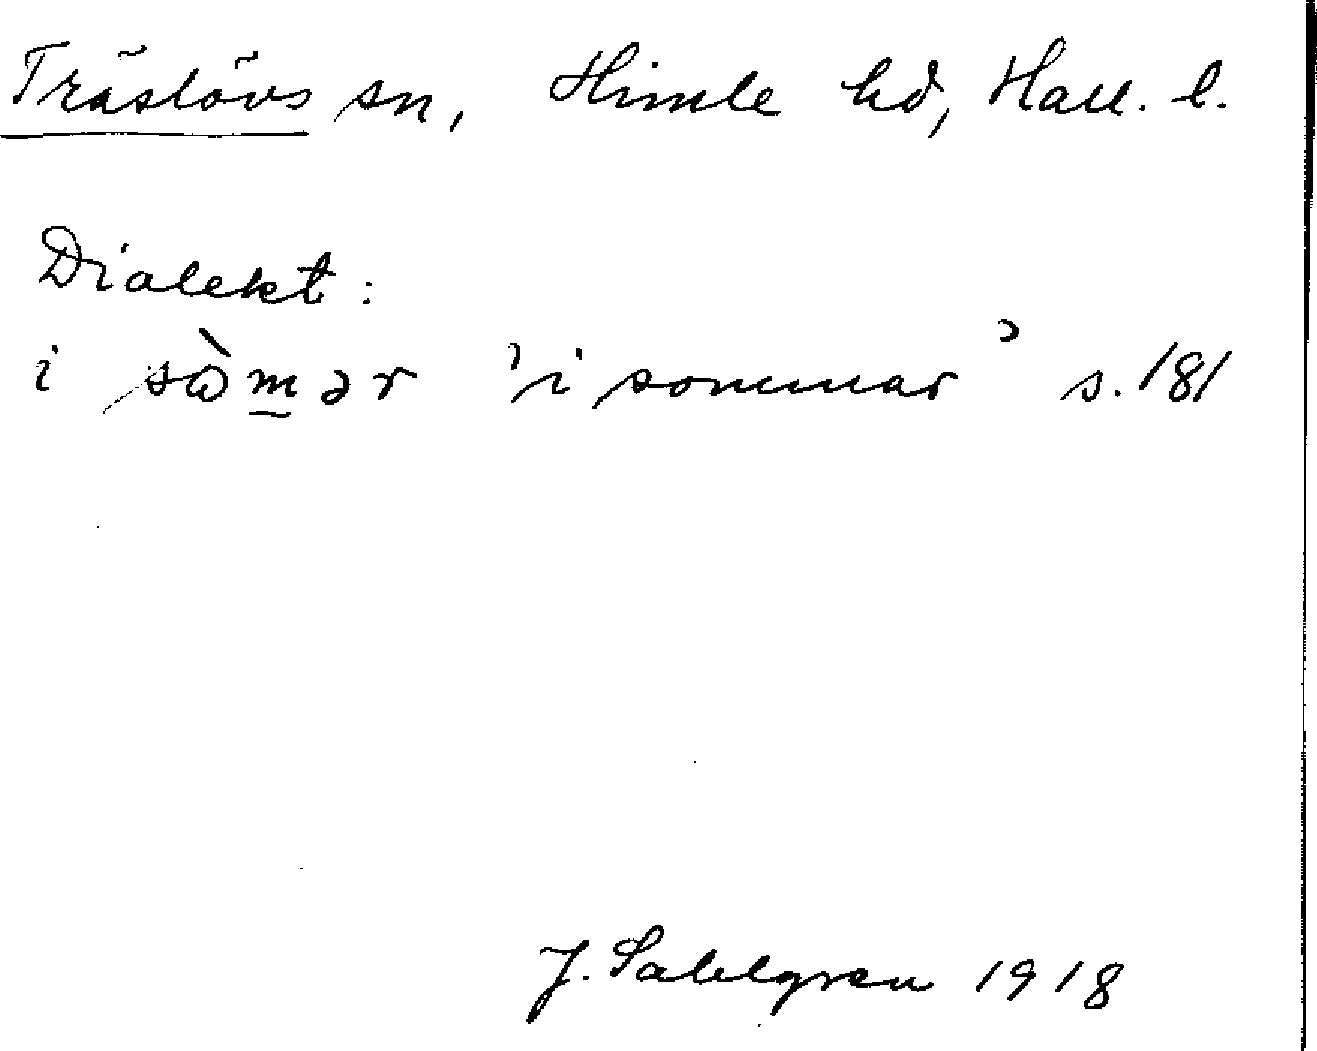 Träslövs sn, Himle hd, Hall. l.
Dialekt:
i sɷ̀m̲ər 'i sommar' s. 181
J. Sahlgren 1918